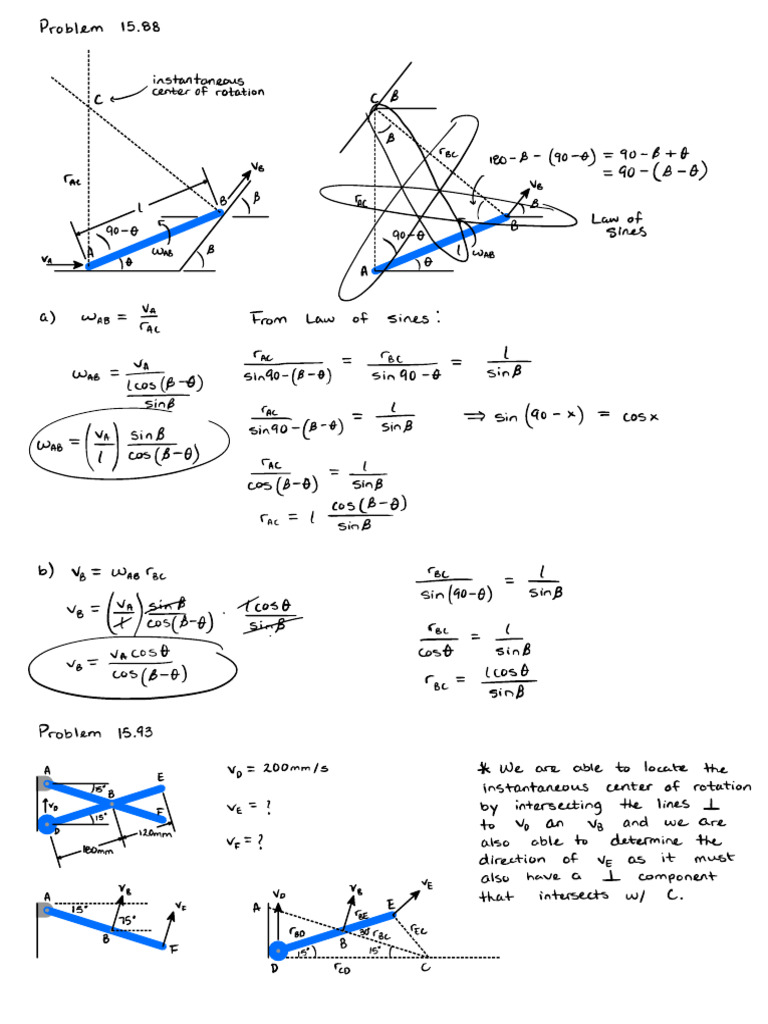 Problem 15.88
instantaneous
center of rotation
C
r_AC
l
v_B
B
β
90-θ
A
θ
ω_AB
β
v_A
C β
β
r_BC
180-β-(90-θ) = 90-β+θ
= 90-(β-θ)
v_B
β
B
r_AC
Law of
sines
90-θ
l
ω_AB
A
θ
a) ω_AB = v_A / r_AC
From Law of sines:
ω_AB = v_A / (l cos(β-θ) / sinβ)
r_AC / sin90-(β-θ) = r_BC / sin 90-θ = l / sinβ
ω_AB = (v_A / l) sinβ / cos(β-θ)
r_AC / sin90-(β-θ) = l / sinβ ⇒ sin(90-x) = cosx
r_AC / cos(β-θ) = l / sinβ
r_AC = l cos(β-θ) / sinβ
b) v_B = ω_AB r_BC
v_B = (v_A / l) sinβ / cos(β-θ) · l cosθ / sinβ
v_B = v_A cosθ / cos(β-θ)
r_BC / sin(90-θ) = l / sinβ
r_BC / cosθ = l / sinβ
r_BC = l cosθ / sinβ
Problem 15.93
A
15°
B
E
v_D
15°
F
D
180mm
120mm
v_D = 200mm/s
v_E = ?
v_F = ?
* We are able to locate the
instantaneous center of rotation
by intersecting the lines ⊥
to v_D an v_B and we are
also able to determine the
direction of v_E as it must
also have a ⊥ component
that intersects w/ C.
A
15°
v_B
75°
B
v_E
F
v_D
v_B
v_E
A
E
r_BE
r_BD
B
30°
r_BC
r_EC
15°
15°
D
r_CD
C